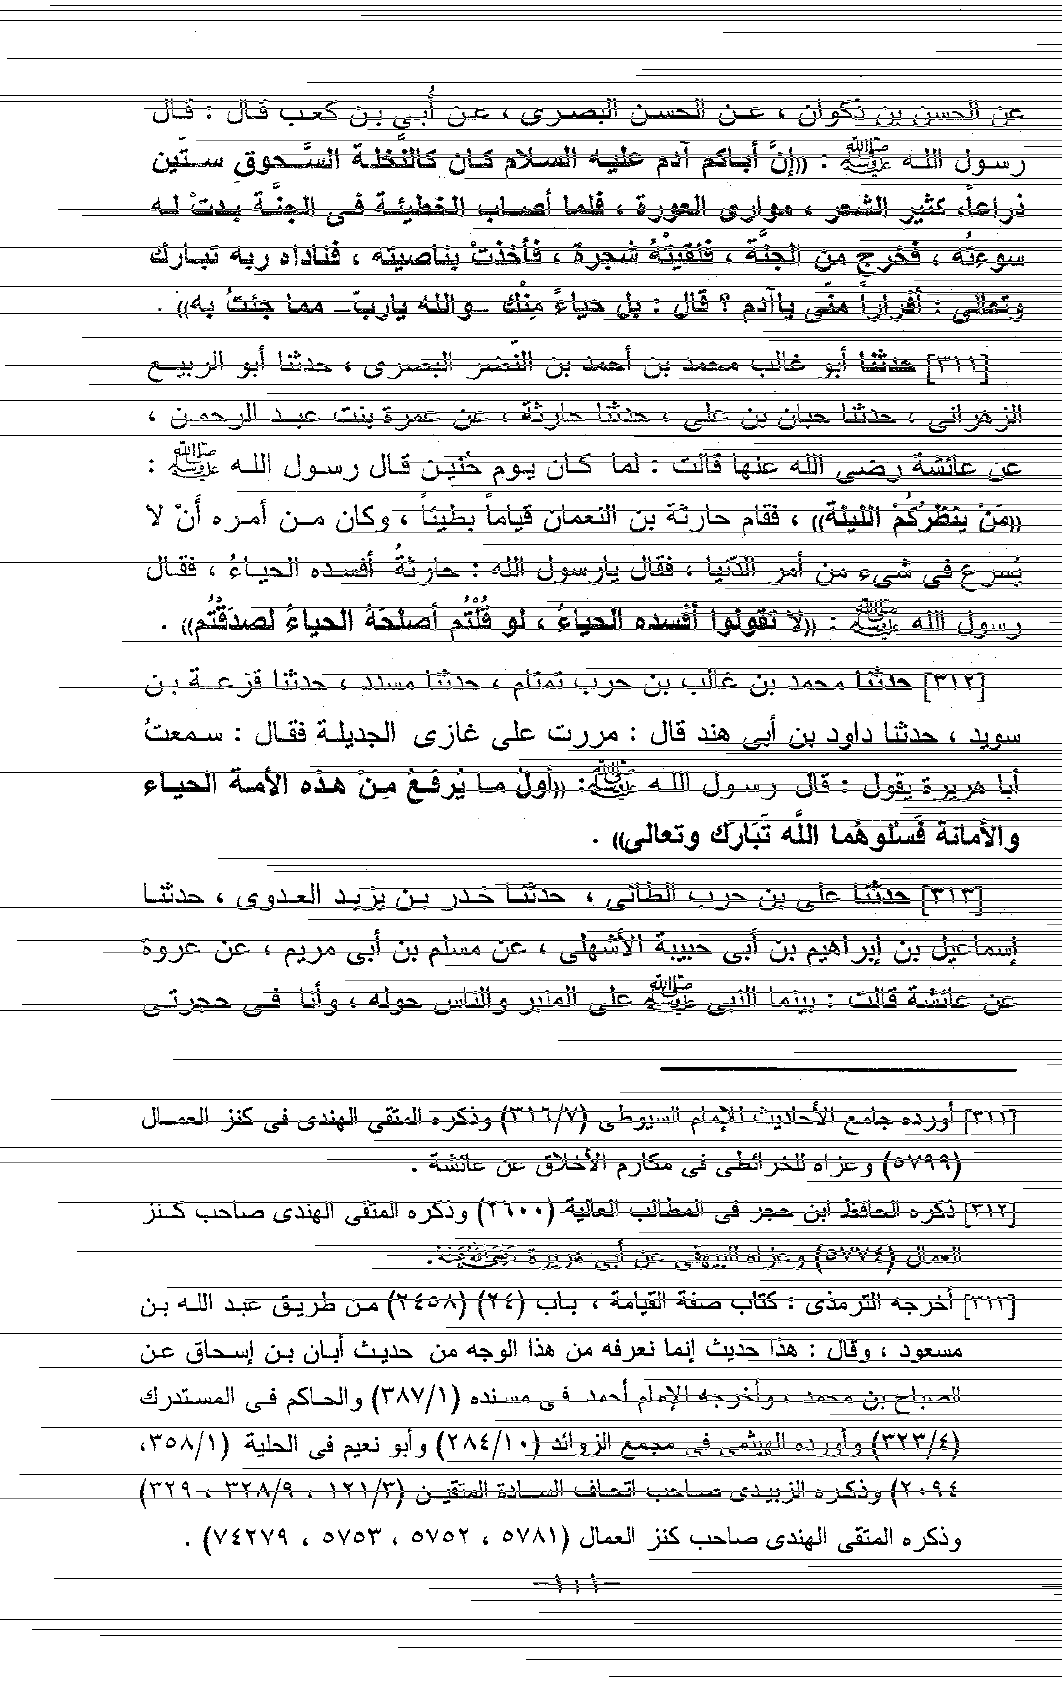 عن الحسن بن ذكوان ، عن الحسن البصرى ، عن أُبي بن كعب قال : قال
رسول الله ﷺ : «إنَّ أباكم آدم عليه السلام كان كالنَّخلة السَّحوق ستّين
ذراعاً، كثير الشعر ، موارى العورة ، فلما أصاب الخطيئة فى الجنَّة بدتْ له
سوءتُه ، فخرج من الجنَّة ، فلقيتْهُ شجرة ، فأخذتْ بناصيته ، فناداه ربه تبارك
وتعالى : أفْراراً منّى ياآدم ؟ قال : بل حياءً مِنْك -والله ياربّ- مما جئتُ به» .
[٣١١] حدثنا أبو غالب محمد بن أحمد بن النَّضر البصرى ، حدثنا أبو الربيع
الزهرانى ، حدثنا حبان بن على ، حدثنا حارثة ، عن عمرة بنت عبد الرحمن ،
عن عائشة رضى الله عنها قالت : لما كان يوم حُنين قال رسول الله ﷺ :
«مَنْ يَنْظُرُكُمْ الليلة» ، فقام حارثة بن النعمان قياماً بطيئاً ، وكان من أمره أنْ لا
يُسرع فى شىء من أمر الدّنيا ، فقال يارسول الله : حارثةُ أفسده الحياءُ ، فقال
رسول الله ﷺ : «لا تقولوا أفْسده الحياءُ ، لو قُلْتُم أصلحَهُ الحياءُ لصدَقْتُم» .
[٣١٢] حدثنا محمد بن غالب بن حرب تمتام ، حدثنا مسدد ، حدثنا قزعة بن
سويد ، حدثنا داود بن أبى هند قال : مررت على غازى الجديلة فقال : سمعتُ
أبا هريرة يقول : قال رسول الله ﷺ: «أولُ ما يُرفَعُ مِنْ هذه الأمة الحياء
والأمانة فَسَلُوهُما اللَّه تَبَارَك وتعالى» .
[٣١٣] حدثنا على بن حرب الطائى ، حدثنا خدر بن يزيد العدوى ، حدثنا
إسماعيل بن إبراهيم بن أبى حبيبة الأشهلى ، عن مسلم بن أبى مريم ، عن عروة
عن عائشة قالت : بينما النبى ﷺ على المنبر والناس حوله ، وأنا فى حجرتى
[٣١١] أورده جامع الأحاديث للإمام السيوطى (٣١٦/٧) وذكره المتقى الهندى فى كنز العمال
(٥٧٩٩) وعزاه للخرائطى فى مكارم الأخلاق عن عائشة .
[٣١٢] ذكره الحافظ ابن حجر فى المطالب العالية (٢٦٠٠) وذكره المتقى الهندى صاحب كنز
العمال (٥٧٧٤) وعزاه للبيهقى عن أبى هريرة .
[٣١٣] أخرجه الترمذى : كتاب صفة القيامة ، باب (٢٤) (٢٤٥٨) من طريق عبد الله بن
مسعود ، وقال : هذا حديث إنما نعرفه من هذا الوجه من حديث أبان بن إسحاق عن
الصباح بن محمد ، وأخرجه الإمام أحمد فى مسنده (٣٨٧/١) والحاكم فى المستدرك
(٣٢٣/٤) وأورده الهيثمى فى مجمع الزوائد (٢٨٤/١٠) وأبو نعيم فى الحلية (٣٥٨/١،
٢٠٩٤) وذكره الزبيدى صاحب اتحاف السادة المتقين (١٢١/٣ ، ٣٢٨/٩ ، ٣٢٩)
وذكره المتقى الهندى صاحب كنز العمال (٥٧٨١ ، ٥٧٥٢ ، ٥٧٥٣ ، ٧٤٢٧٩) .